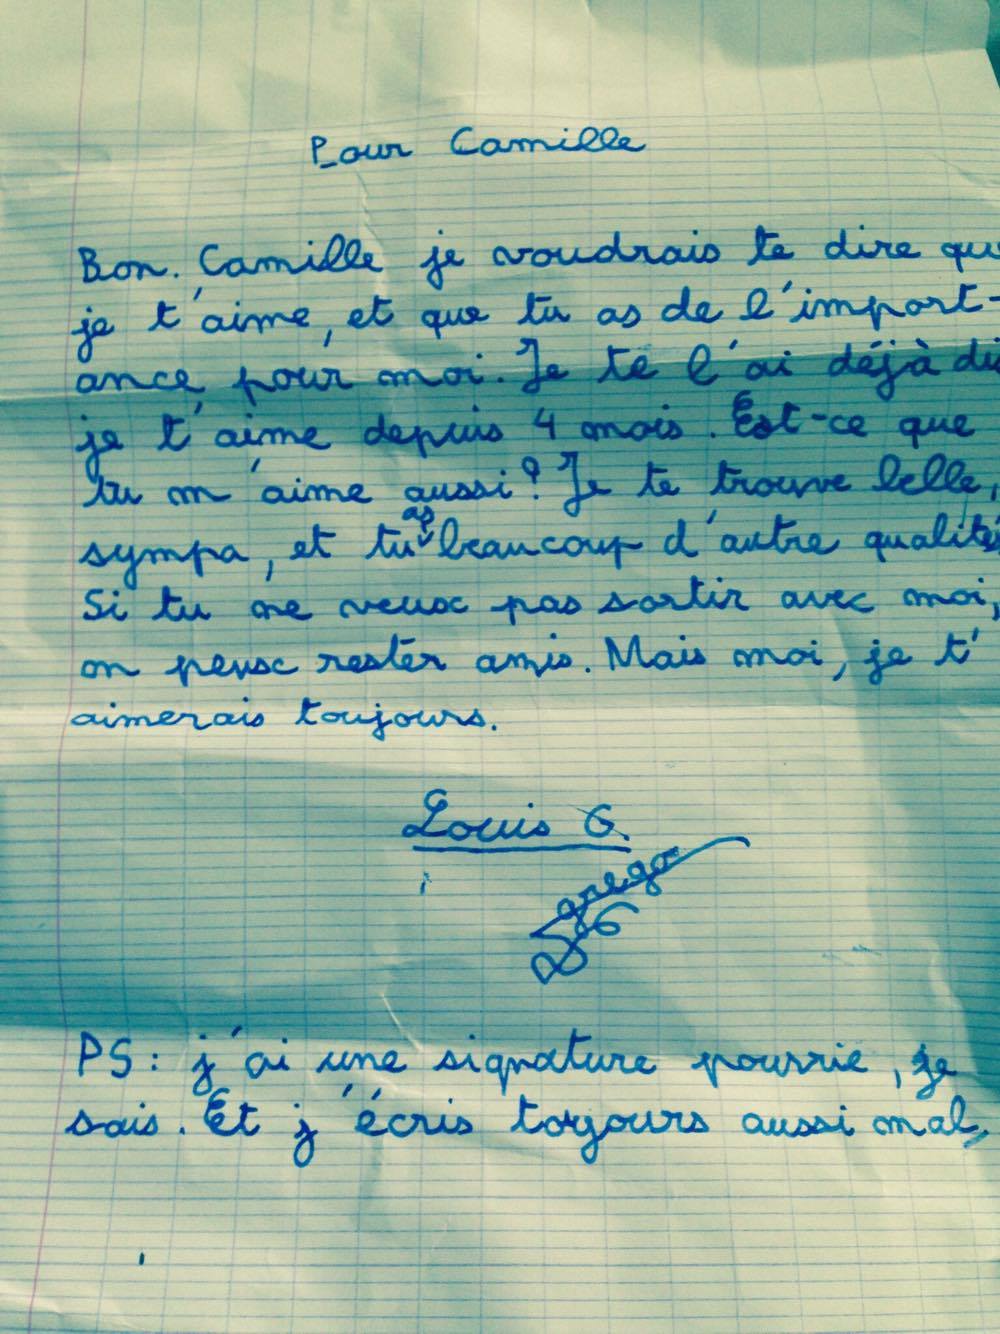 Pour Camille
Bon. Camille je voudrais te dire que
je t'aime, et que tu as de l'import-
ance pour moi. Je te l'ai déjà dit
je t'aime depuis 4 mois. Est-ce que
tu m'aime aussi? Je te trouve belle,
sympa, et tu as beaucoup d'autre qualités
Si tu ne veux pas sortir avec moi,
on peux rester amis. Mais moi, je t'
aimerais toujours.
Louis G.
grego
PS: j'ai une signature pourrie, je
sais. Et j'écris toujours aussi mal,